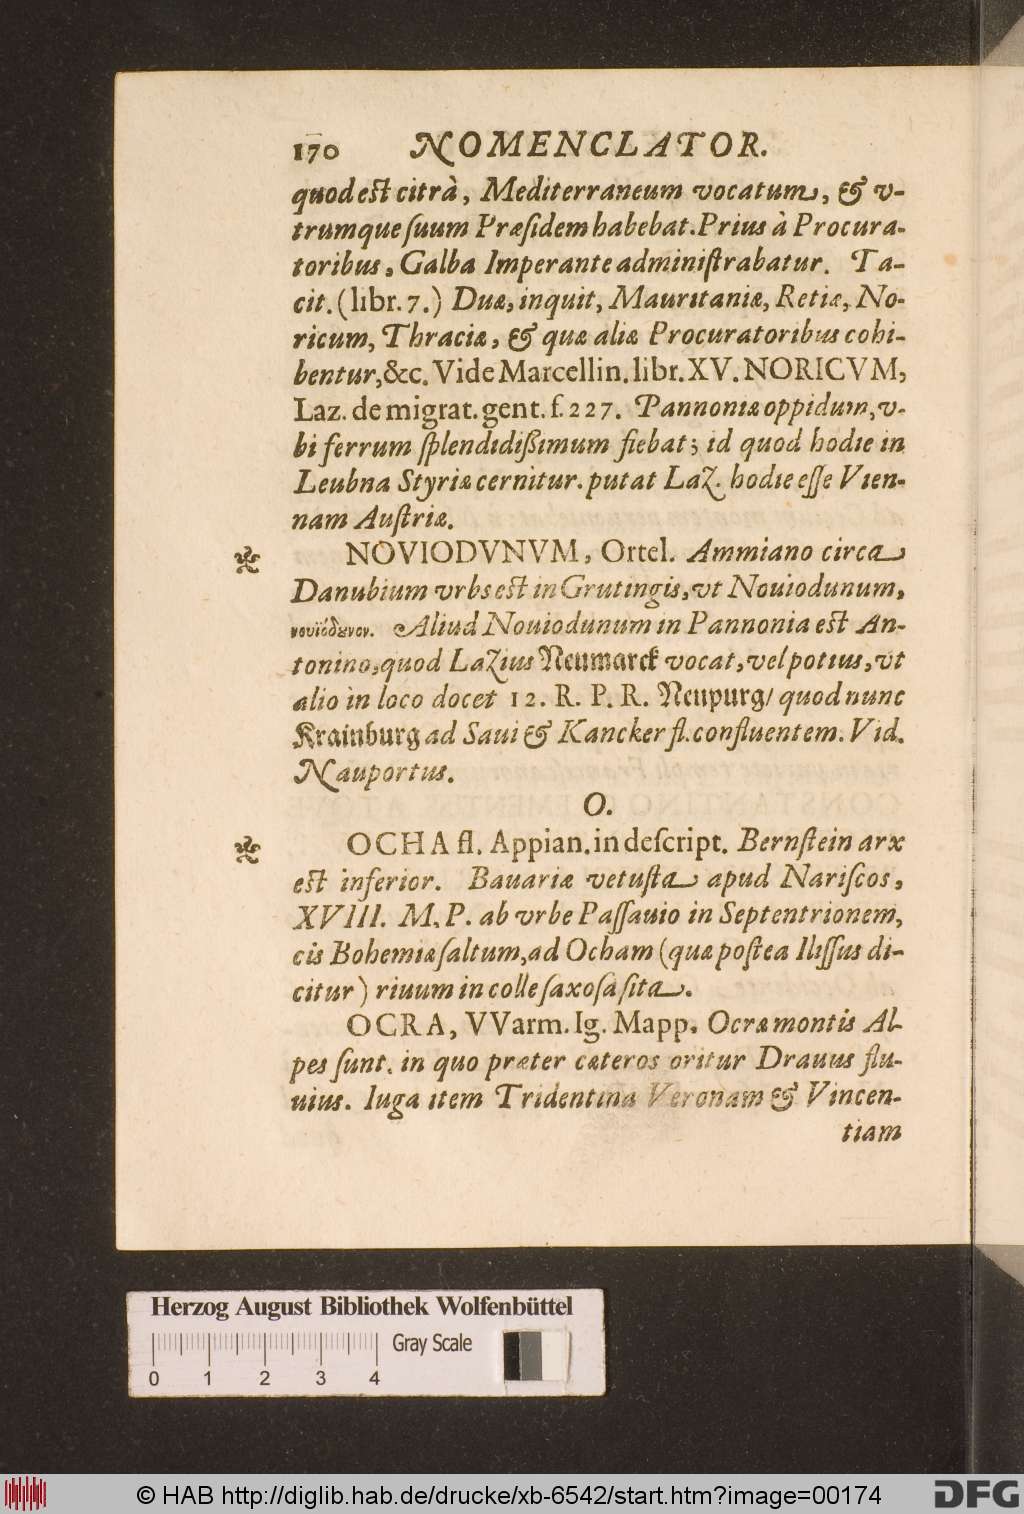 170 NOMENCLATOR.
quod est citrà, Mediterraneum vocatum, & v-
trumque ſuum Præſidem habebat. Prius à Procura-
toribus, Galba Imperante adminiſtrabatur. Ta-
cit. (libr. 7.) Duæ, inquit, Mauritaniæ, Retiæ, No-
ricum, Thraciæ, & quæ aliæ Procuratoribus cohi-
bentur, &c. Vide Marcellin. libr. XV. NORICVM,
Laz. de migrat. gent. f. 227. Pannoniæ oppidum, v-
bi ferrum ſplendidißimum fiebat; id quod hodie in
Leubna Styriæ cernitur. putat Laz. hodie eſſe Vien-
nam Auſtriæ.
NOVIODVNVM, Ortel. Ammiano circa
Danubium vrbs est in Grutingis, vt Nouiodunum,
νουϊόδȣνον. Aliud Nouiodunum in Pannonia est An-
tonino, quod Lazius Neumarck vocat, vel potius, vt
alio in loco docet 12. R. P. R. Neupurg/ quod nunc
Krainburg ad Saui & Kancker fl. confluentem. Vid.
Nauportus.
O.
OCHA fl. Appian. in deſcript. Bernſtein arx
est inferior. Bauariæ vetuſta apud Nariſcos,
XVIII. M. P. ab vrbe Paſſauio in Septentrionem,
cis Bohemiæ ſaltum, ad Ocham (quæ poſtea Iliſſus di-
citur) riuum in colle ſaxoſa ſita.
OCRA, VVarm. Ig. Mapp. Ocræ montis Al-
pes ſunt. in quo præter cæteros oritur Drauus flu-
uius. Iuga item Tridentina Veronam & Vincen-
tiam
Herzog August Bibliothek Wolfenbüttel
Gray Scale
0 1 2 3 4
© HAB http://diglib.hab.de/drucke/xb-6542/start.htm?image=00174
DFG